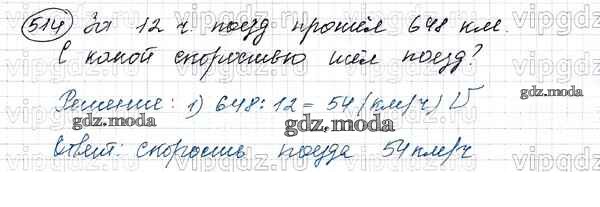 514 За 12 ч. поезд прошёл 648 км.
С какой скоростью шёл поезд?
Решение: 1) 648:12=54 (км/ч) V
gdz.moda gdz.moda
Ответ: скорость поезда 54 км/ч
vipgdz.ru